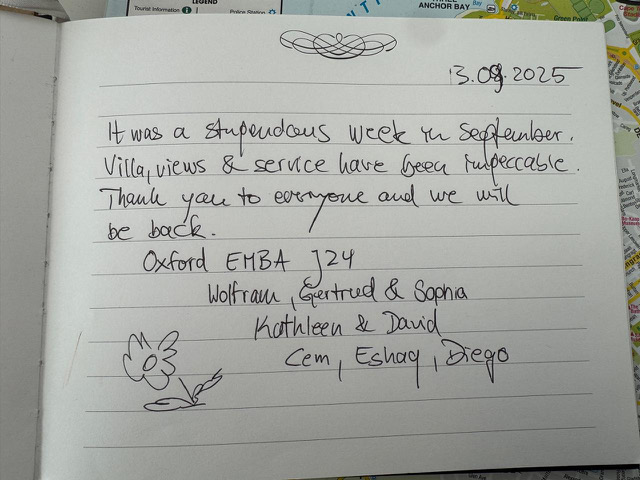 LEGEND
Tourist Information
Police Station
ANCHOR BAY
Bay
Green Point
13.09.2025
It was a stupendous week in September.
Villa, views & service have been impeccable.
Thank you to everyone and we will
be back.
Oxford EMBA J24
Wolfram, Gertrud & Sophia
Kathleen & David
Cem, Eshaq, Diego